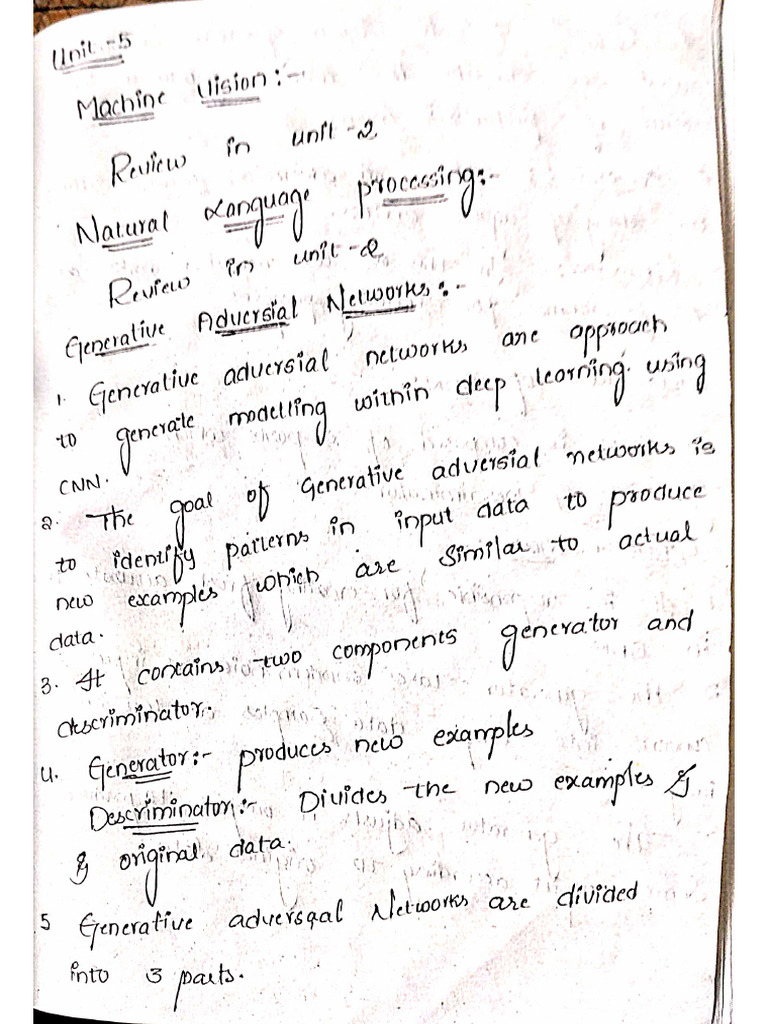 Unit-5
Machine Vision:-
Review in unit-2
Natural Language processing:-
Review in unit-2
Generative Adversial Networks:-
1. Generative adversial networks are approach
to generate modelling within deep learning using
CNN.
2. The goal of Generative adversial networks is
to identify patterns in input data to produce
new examples which are similar to actual
data.
3. It contains two components generator and
descriminator.
4. Generator:- produces new examples
Descriminator:- Divides the new examples &
& original data.
5 Generative adversaal Networks are divided
into 3 parts.